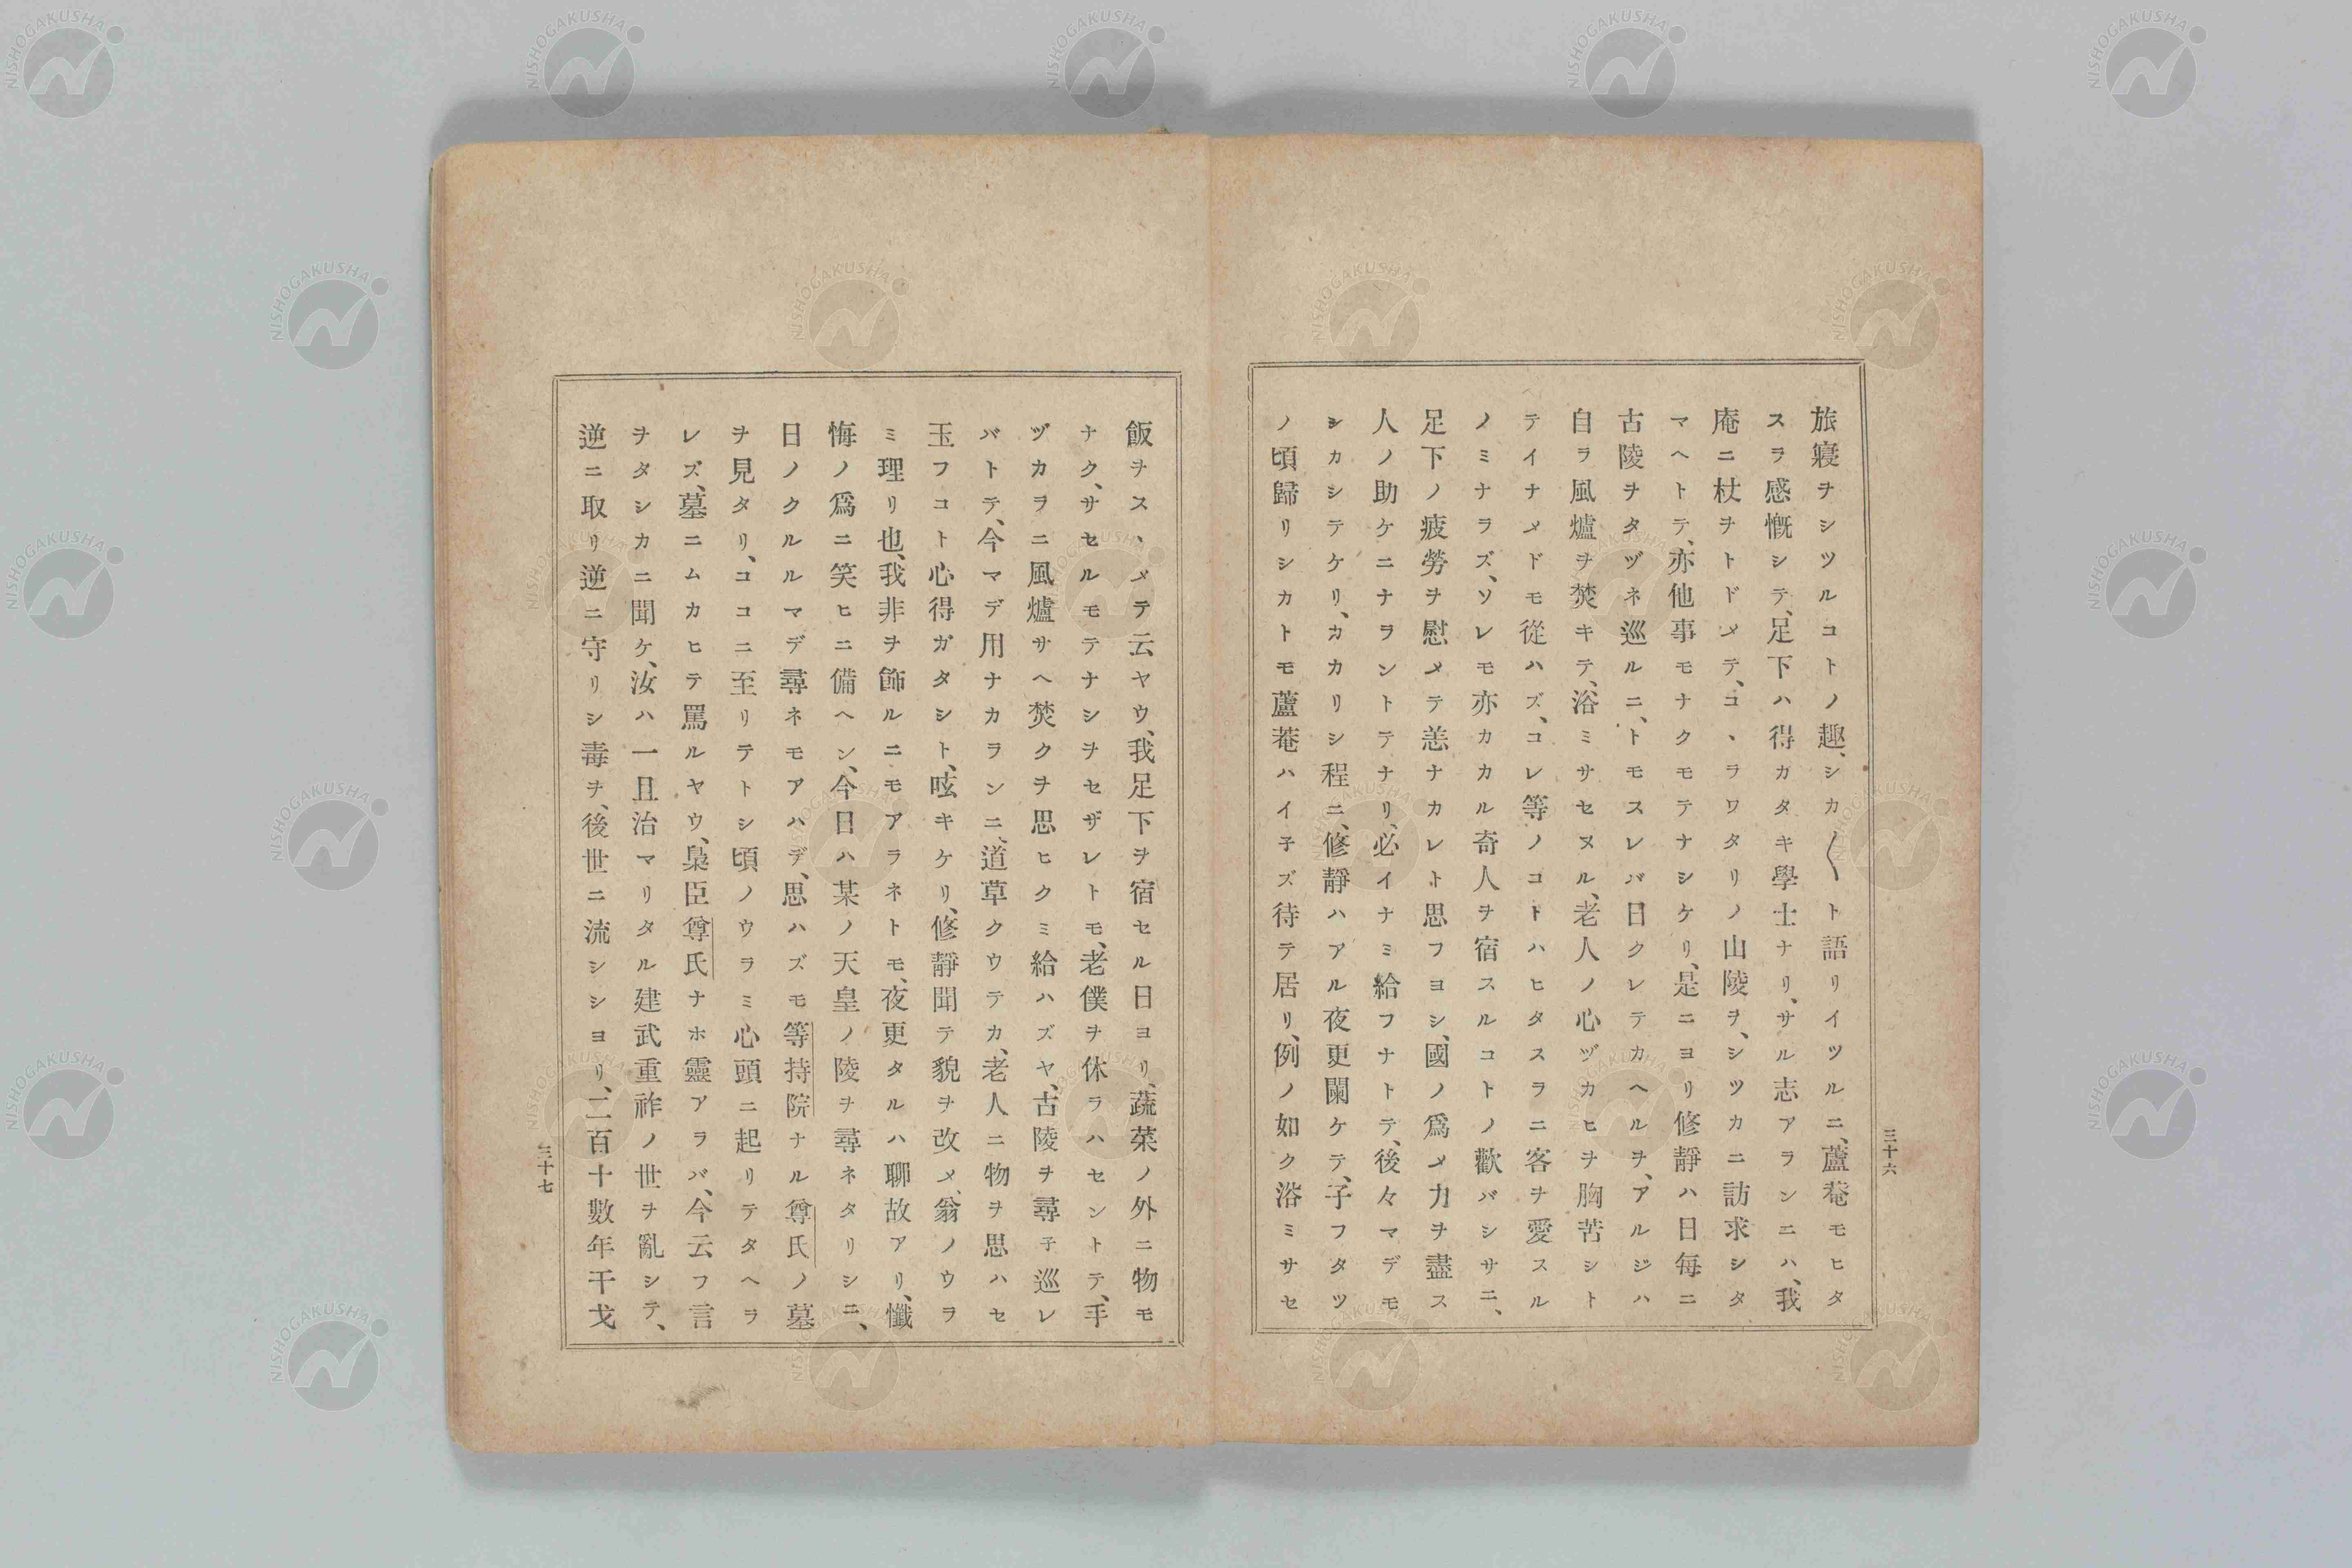 旅寢ヲシツルコトノ趣、シカ〱ト語リイツルニ、蘆菴モヒタ
スラ感慨シテ、足下ハ得ガタキ學士ナリ、サル志アランニハ、我
庵ニ杖ヲトドメテ、コヽラワタリノ山陵ヲ、シツカニ訪求シタ
マヘトテ、亦他事モナクモテナシケリ、是ニヨリ修靜ハ日毎ニ
古陵ヲタヅネ巡ルニ、トモスレバ日クレテカヘルヲ、アルジハ
自ラ風爐ヲ焚キテ、浴ミサセヌル、老人ノ心ヅカヒヲ胸苦シト
テイナメドモ從ハズ、コレ等ノコトハヒタスラニ客ヲ愛スル
ノミナラズ、ソレモ亦カカル奇人ヲ宿スルコトノ歡バシサニ、
足下ノ疲勞ヲ慰メテ恙ナカレト思フヨシ、國ノ爲メ力ヲ盡ス
人ノ助ケニナラントテナリ、必イナミ給フナトテ、後々マデモ
シカシテケリ、カカリシ程ニ、修靜ハアル夜更闌ケテ、子フタツ
ノ頃歸リシカトモ蘆菴ハイ子ズ待テ居リ、例ノ如ク浴ミサセ
三十六
飯ヲスヽメテ云ヤウ、我足下ヲ宿セル日ヨリ、蔬菜ノ外ニ物モ
ナク、サセルモテナシヲセザレトモ、老僕ヲ休ラハセントテ、手
ヅカラニ風爐サヘ焚クヲ思ヒクミ給ハズヤ、古陵ヲ尋子巡レ
バトテ、今マデ用ナカランニ、道草クウテカ、老人ニ物ヲ思ハセ
玉フコト心得ガタシト、呟キケリ、修靜聞テ貌ヲ改メ、翁ノウラ
ミ理リ也、我非ヲ飾ルニモアラネトモ、夜更タルハ聊故アリ、懺
悔ノ爲ニ笑ヒニ備ヘン、今日ハ某ノ天皇ノ陵ヲ尋ネタリシニ、
日ノクルルマデ尋ネモアハデ、思ハズモ等持院ナル尊氏ノ墓
ヲ見タリ、ココニ至リテトシ頃ノウラミ心頭ニ起リテタヘラ
レズ、墓ニムカヒテ罵ルヤウ、梟臣尊氏ナホ靈アラバ、今云フ言
ヲタシカニ聞ケ、汝ハ一旦治マリタル建武重祚ノ世ヲ亂シテ、
逆ニ取リ逆ニ守リシ毒ヲ、後世ニ流シシヨリ、二百十數年干戈
三十七
NISHOGAKUSHA